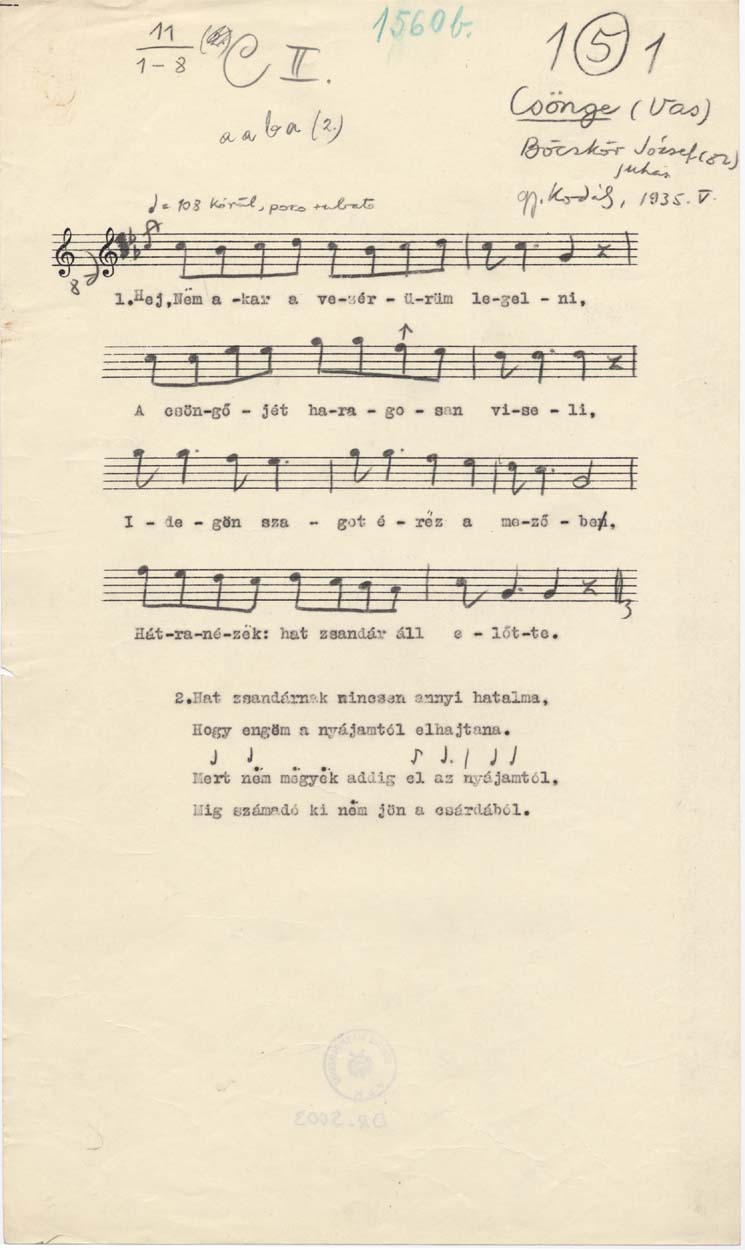 11
1-8
C II.
1560 b.
1 5 1
a a b a (2.)
Csönge (Vas)
Böczkör József (82)
juhász
gy. Kodály, 1935. V.
♩= 108 körül, poco rubato
8
1.Hej,Nëm a -kar a ve-zér - ü-rüm le-gel - ni,
A csön-gő - jét ha-ra - go - san vi-se - li,
I - de - gön sza - got é - rëz a me-ző - ben,
Hát-ra-né-zëk: hat zsandár áll e - lőt-te.
3
2.Hat zsandárnak nincsen annyi hatalma,
Hogy engöm a nyájamtól elhajtana.
Mert nëm mëgyëk addig el az nyájamtól,
Mig számadó ki nëm jön a csárdából.